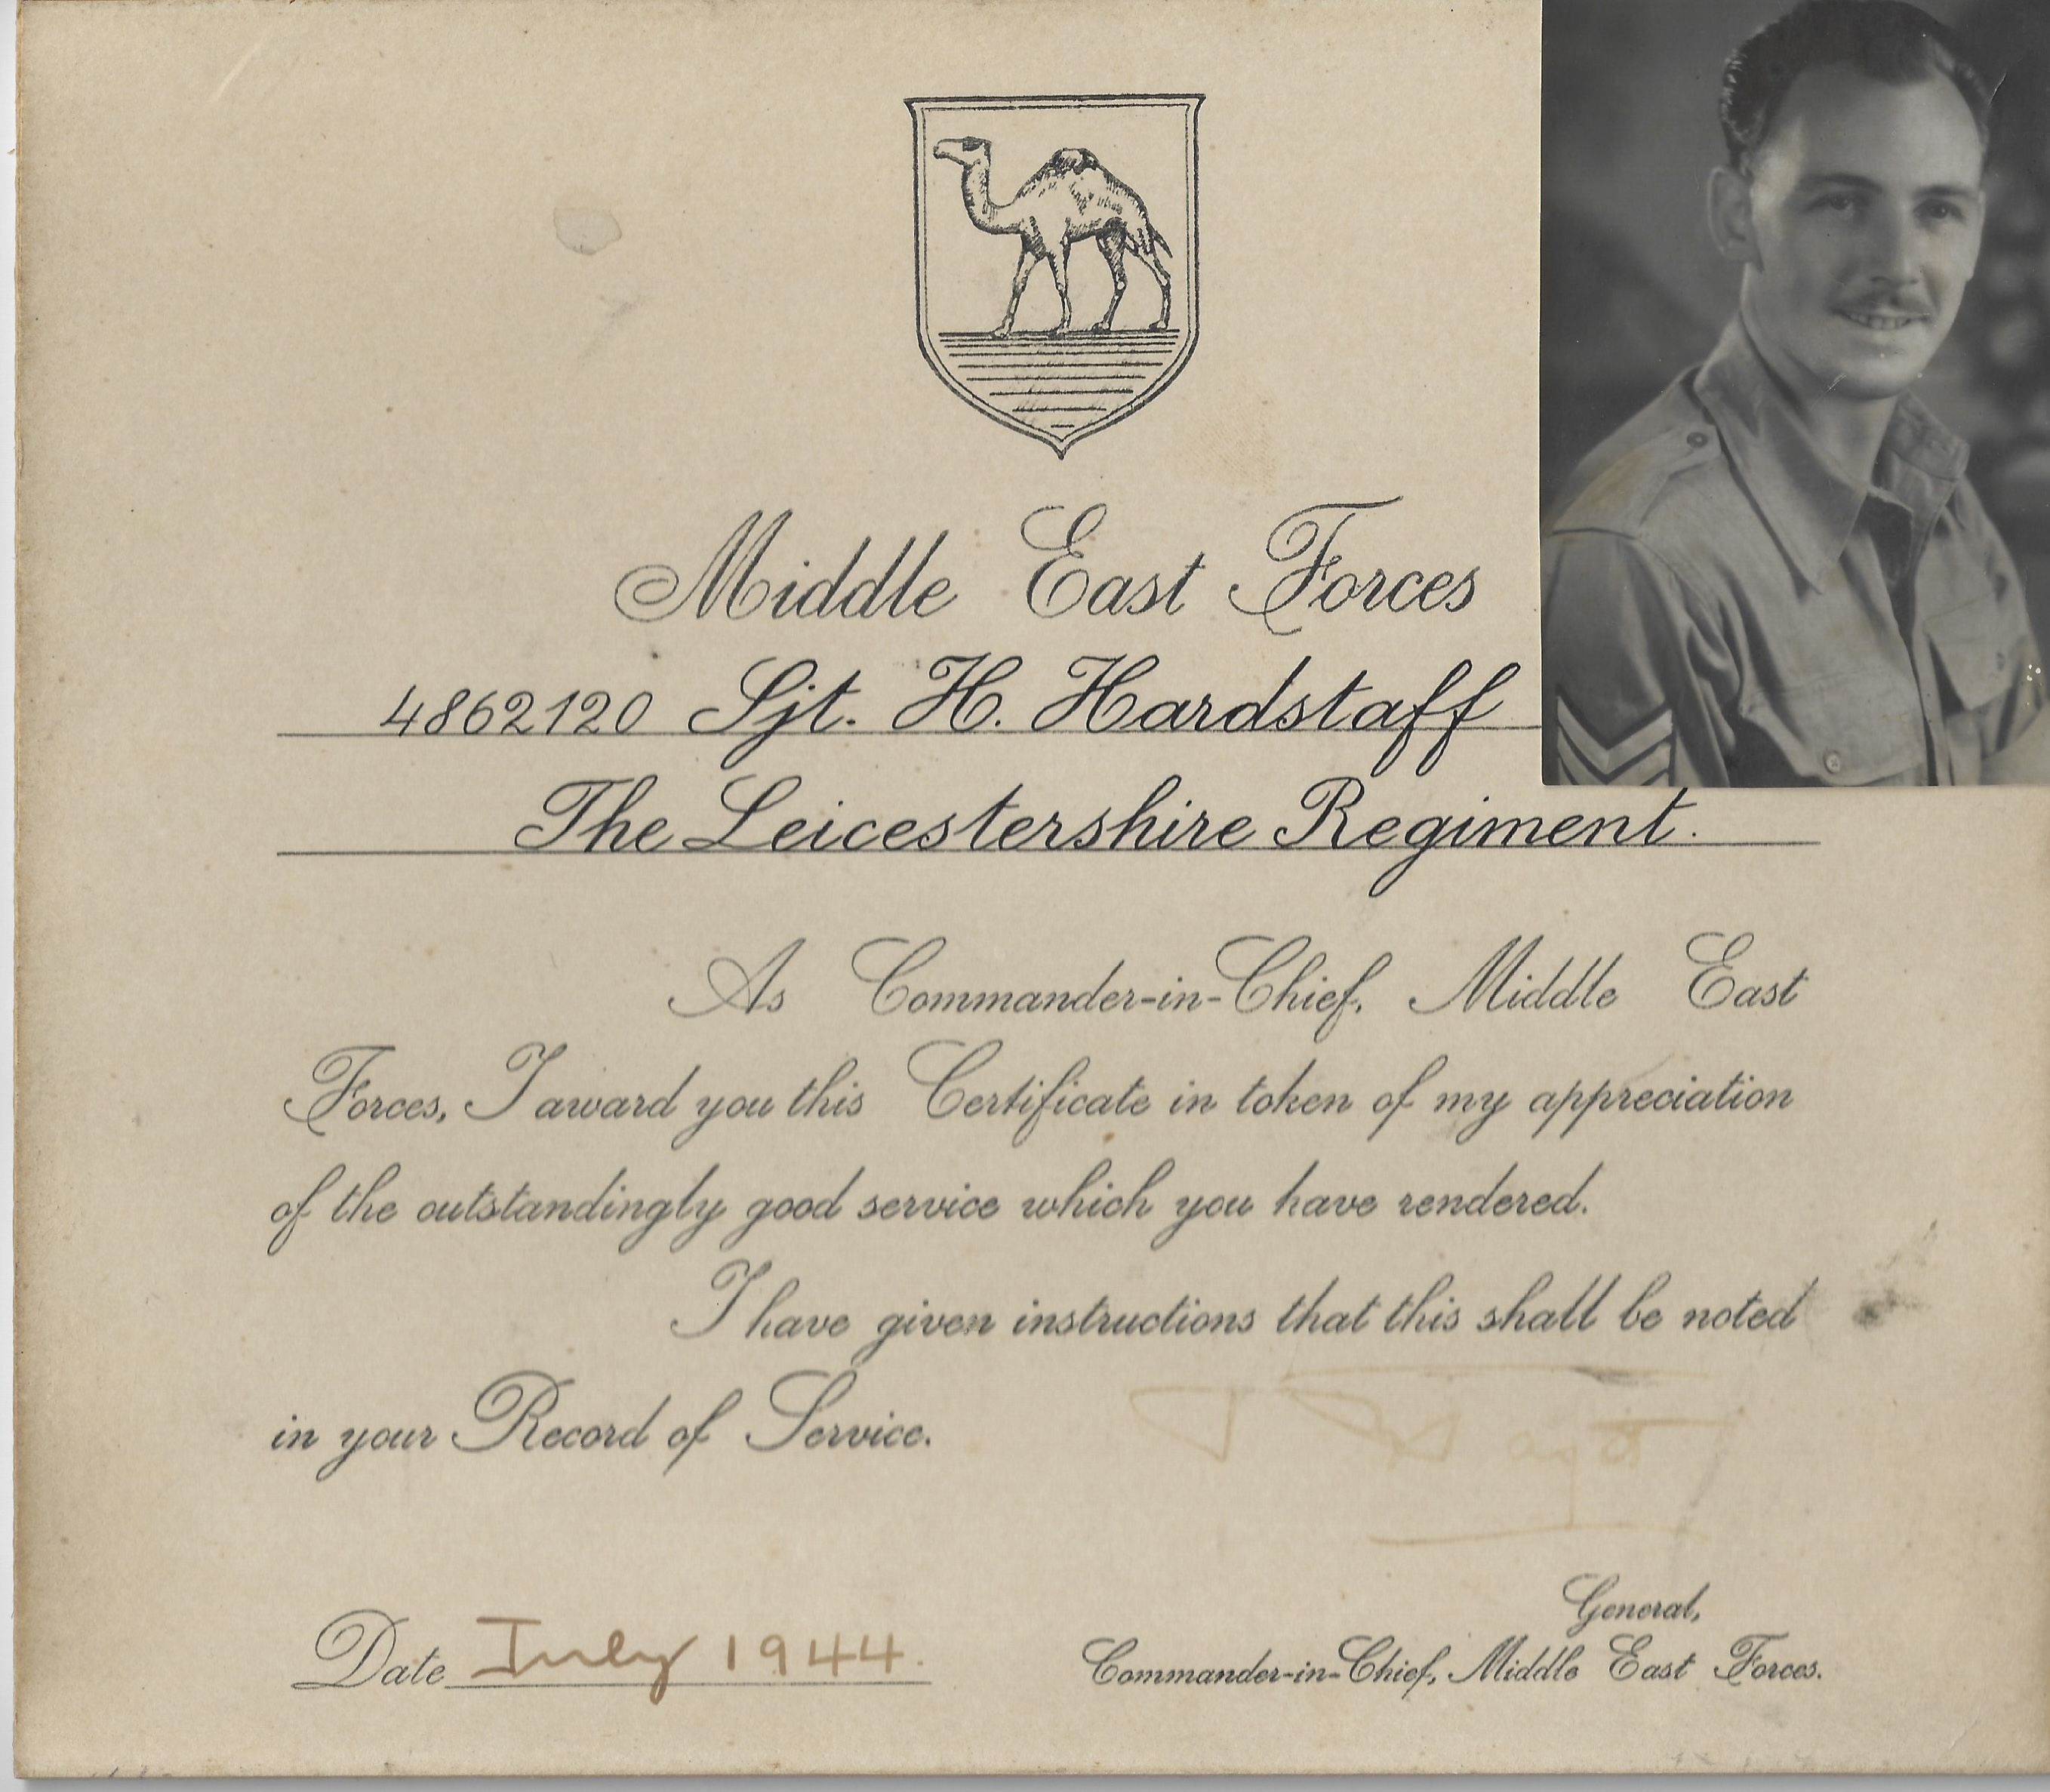 Middle East Forces
4862120 Sjt. H. Hardstaff
The Leicestershire Regiment.
As Commander-in-Chief, Middle East
Forces, I award you this Certificate in token of my appreciation
of the outstandingly good service which you have rendered.
I have given instructions that this shall be noted
in your Record of Service.
General,
Date July 1944.
Commander-in-Chief, Middle East Forces.